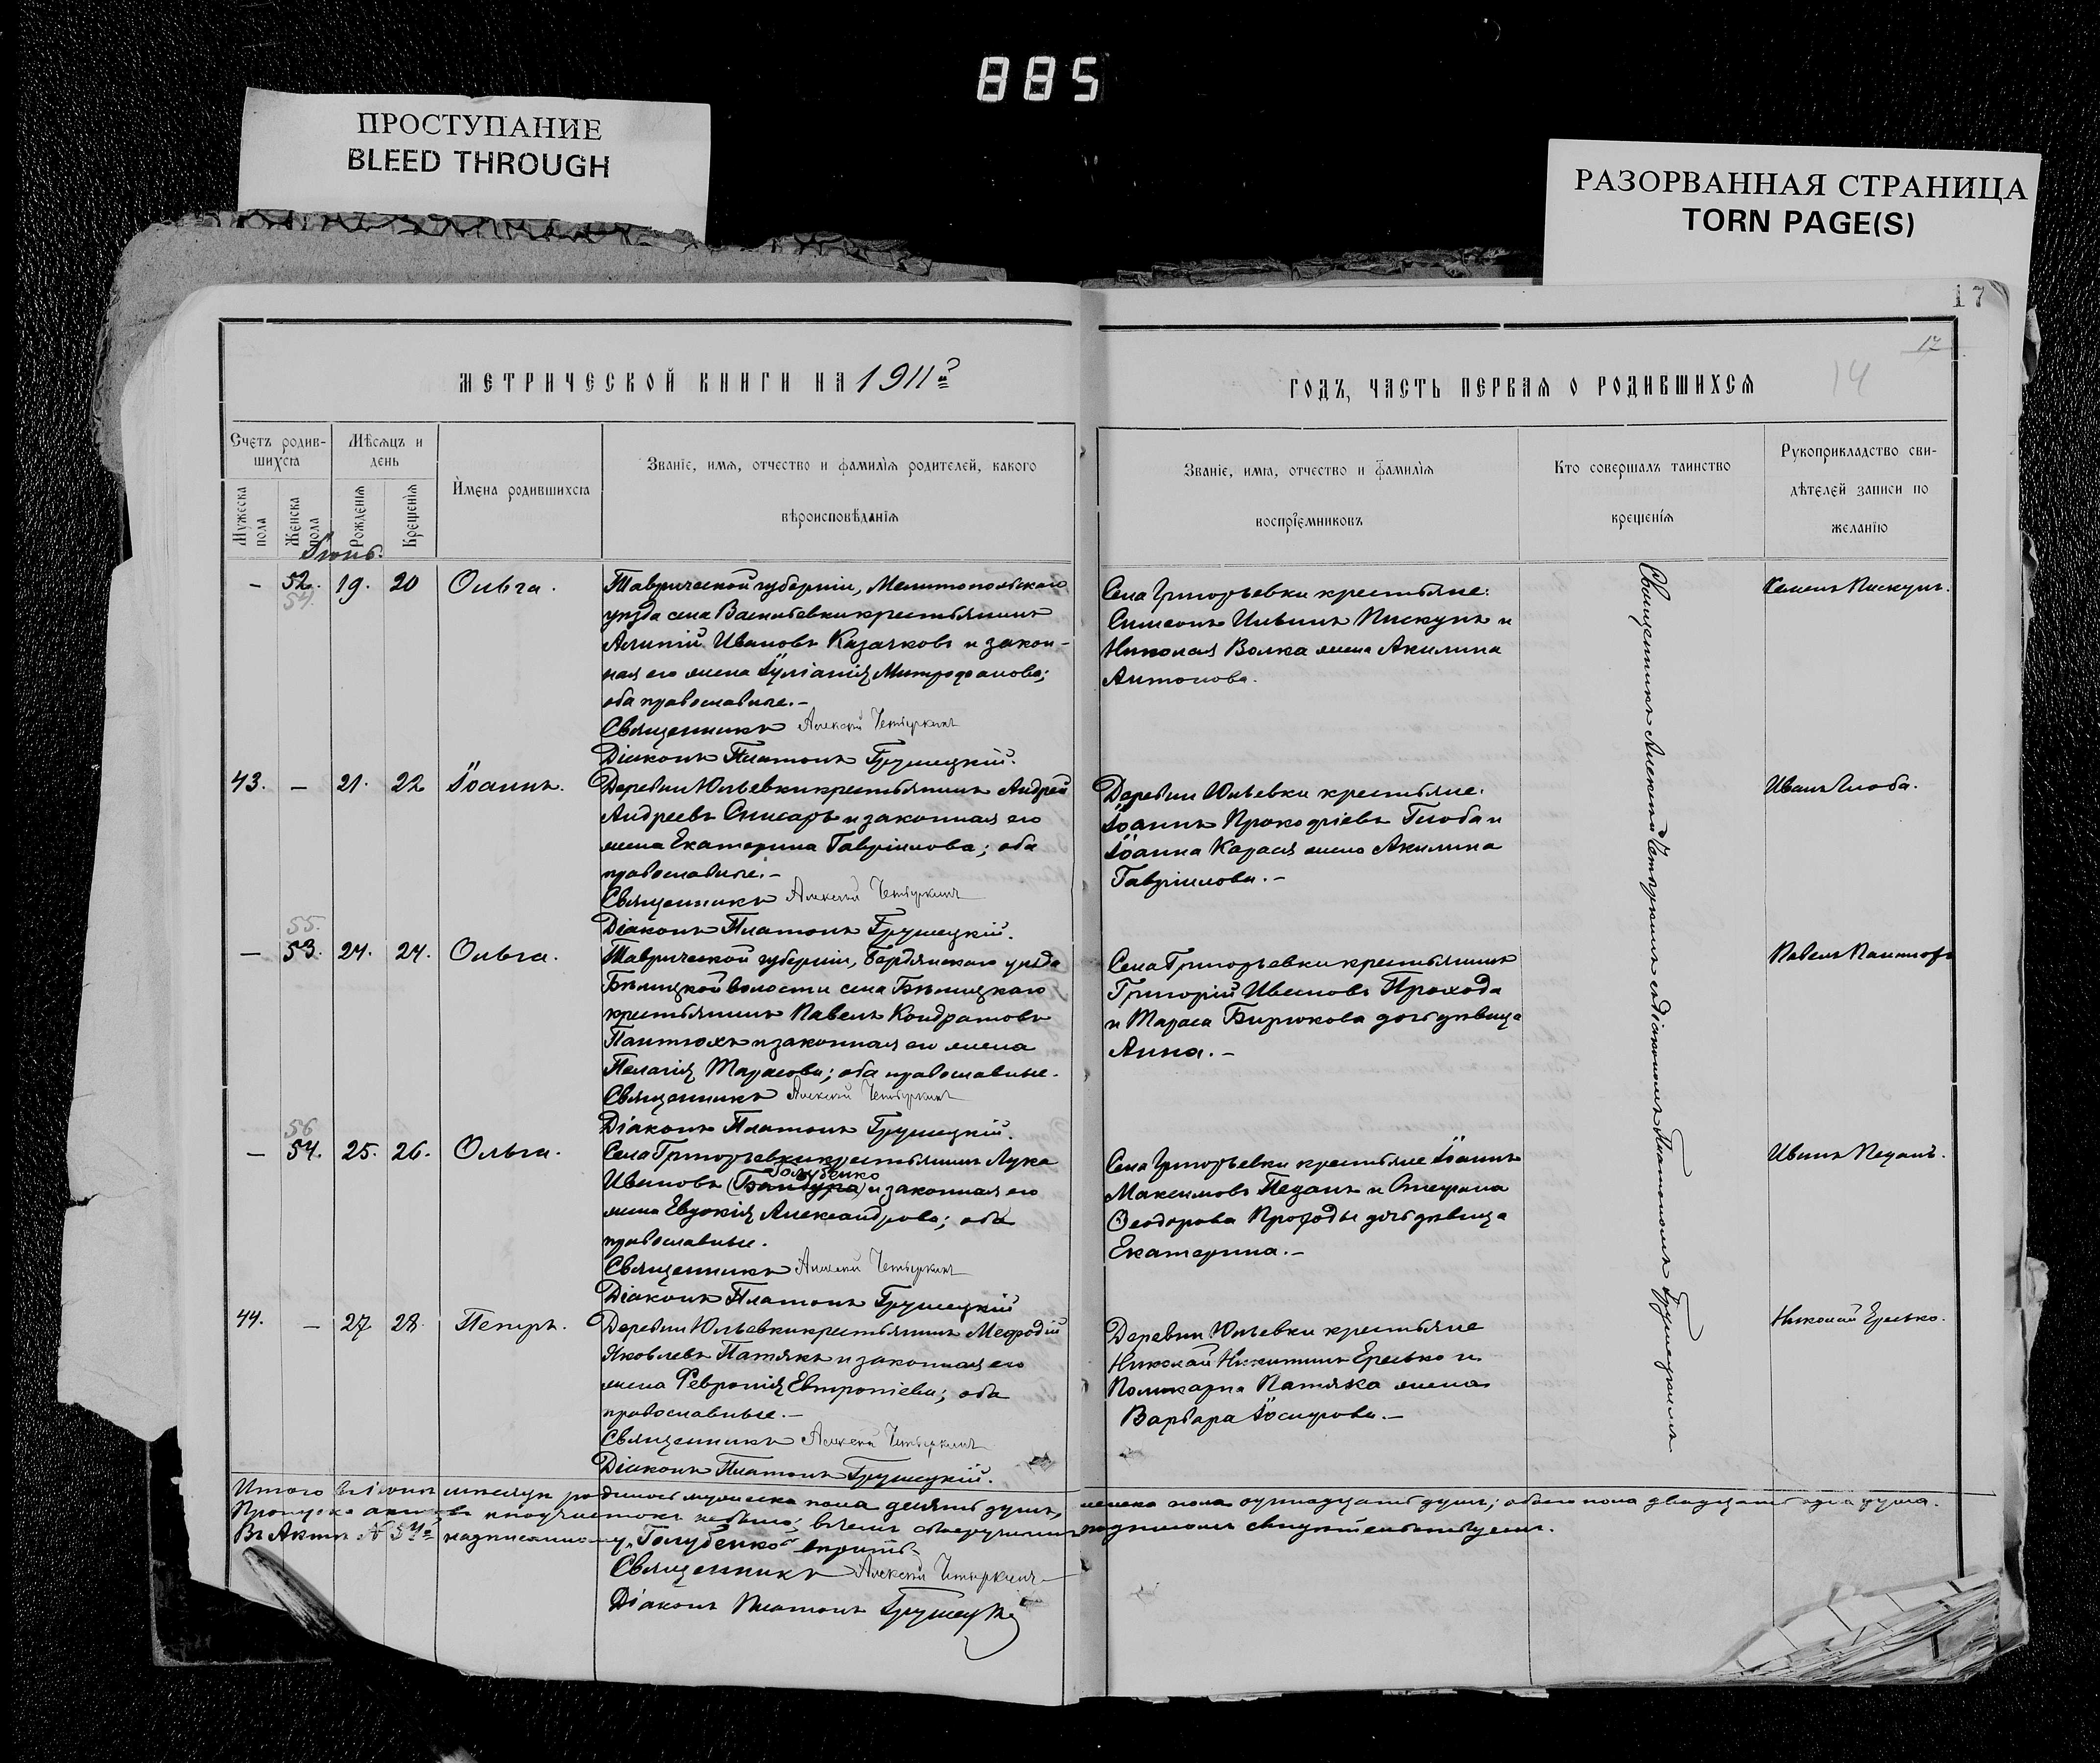 885
ПРОСТУПАНИЕ
BLEED THROUGH
РАЗОРВАННАЯ СТРАНИЦА
TORN PAGE(S)
17
17
14
МЕТРИЧЕСКОЙ КНИГИ НА 1911й
Счетъ родив-
шихся
Мѣсяцъ и
день
Имена родившихся
Званіе, имя, отчество и фамилія родителей, какого
вѣроисповѣданія
Мужеска пола
Женска пола
Рожденія
Крещенія
Іюнь.
— 52. 19. 20 Ольга.
54.
Таврической губерніи, Мелитопольскаго
уѣзда села Васильевки крестьянинъ
Алипій Ивановъ Казачковъ и закон-
ная его жена Іуліанія Митрофанова;
оба православные.—
Священникъ Алексій Четыркинъ
Діаконъ Платонъ Грушецкій.
43. — 21. 22 Іоаннъ.
Деревни Юльевки крестьянинъ Андрей
Андреевъ Снисаръ и законная его
жена Екатерина Гавріилова; оба
православные.—
Священникъ Алексій Четыркинъ
Діаконъ Платонъ Грушецкій.
55.
— 53. 24. 24. Ольга.
Таврической губерніи, Бердянскаго уѣзда
крестьянинъ Павелъ Кондратовъ
Пантюхъ и законная его жена
Пелагія Тарасова; оба православные.
Священникъ Алексій Четыркинъ
Діаконъ Платонъ Грушецкій.
56
— 54. 25. 26. Ольга.
Села Григорьевки крестьянинъ Лука
Голубенко
Ивановъ (Бандура) и законная его
жена Евдокія Александрова; оба
православные.
Священникъ Алексій Четыркинъ
Діаконъ Платонъ Грушецкій
44. — 27 28. Петръ.
Деревни Юльевки крестьянинъ Меѳодій
Яковлевъ Патякъ и законная его
жена Февронія Евтропіева; оба
православные.—
Священникъ Алексій Четыркинъ
Діаконъ Платонъ Грушецкій.
ГОДЪ, ЧАСТЬ ПЕРВАЯ О РОДИВШИХСЯ
Званіе, имя, отчество и фамилія
воспріемниковъ
Кто совершалъ таинство
крещенія
Рукоприкладство сви-
дѣтелей записи по
желанію
Села Григорьевки крестьяне:
Симеонъ Ильинъ Пискунъ и
Николая Волка жена Акилина
Антонова.
Семенъ Пискунъ.
Деревни Юльевки крестьяне:
Іоаннъ Прокофіевъ Глоба и
Іоанна Карася жена Акилина
Гавріилова.—
Иванъ Глоба.
Села Григорьевки крестьянинъ
Григорій Ивановъ Прохода
и Тараса Бирюкова дочь дѣвица
Анна.—
Павелъ
Села Григорьевки крестьяне Іоаннъ
Максимовъ Педанъ и Стефана
Ѳеодорова Проходы дочь дѣвица
Екатерина.—
Иванъ Педанъ.
Деревни Юльевки крестьяне
Николай Никитинъ Ерелько и
Поликарпа Патяка жена
Варвара Іосифова.—
Николай Ерелько.
Священникъ Алексій Четыркинъ съ діакономъ Платономъ Грушецкимъ
Итого въ іюнѣ мѣсяцѣ родилось мужеска пола десять душъ, женска пола одиннадцать душъ; обоего пола двадцать одна душа.
Пропуска актовъ не было; въ чемъ собственноручнымъ подписомъ свидѣтельствуемъ.
Въ Актѣ № 54й надписанному „Голубенко" вѣрить.
Священникъ Алексій Четыркинъ
Діаконъ Платонъ Грушецкій